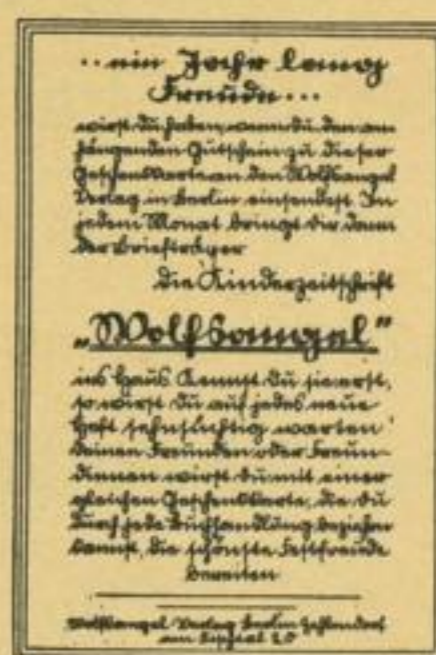 .. ein Jahr lang
Freude...
wirst du haben, wenn du den an=
hängenden Gutschein zu dieser
Geschenkkarte an den Wolfsangel
Verlag in Berlin einsendest. In
jedem Monat bringt dir dann
der Briefträger
die Kinderzeitschrift
„Wolfsangel"
ins Haus. Kennst du sie erst,
so wirst du auf jedes neue
Heft sehnsüchtig warten
deinen Freunden oder Freun=
dinnen wirst du mit einer
gleichen Geschenkkarte, die du
durch jede Buchhandlung beziehen
kannst, die schönste Festfreude
bereiten
Wolfsangel Verlag Berlin Zehlendorf
am Fischtal 20